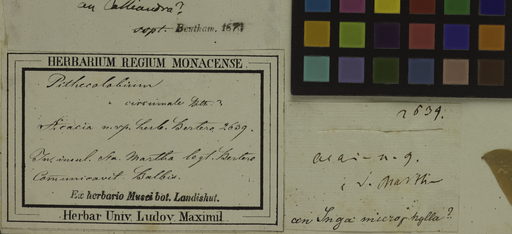 an Calliandra?
sept. Bentham. 187
HERBARIUM REGIUM MONACENSE
Pithecolobium
circinale Bth. ?
Acacia n. sp. herb. Bertero 2639.
In insul. Sta. Martha legt. Bertero
Communicavit Balbis.
Ex herbario Musei bot. Landishut.
Herbar Univ. Ludov. Maximil.
2639.
acacia n. 9.
S. Martha
an Inga microphylla?